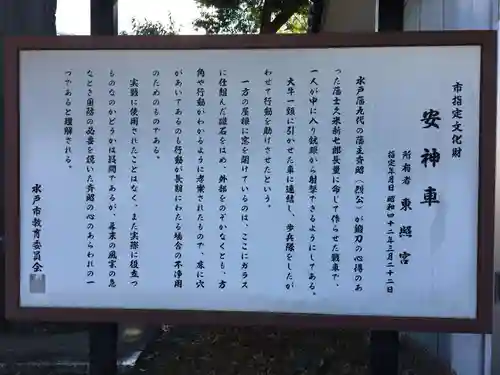 市指定文化財
安神車
所有者 東照宮
指定年月日 昭和四十二年三月二十二日
水戸藩九代の藩主斉昭（烈公）が鍛刀の心得のあ
った藩士久米新七郎長量に命じて作らせた戦車で、
一人が中に入り銃眼から射撃できるようにしてある。
大牛一頭に引かせた車に連結し、歩兵隊をしたが
わせて行動を助けさせたという。
一方の屋根に窓を開けているのは、ここにガラス
に仕組んだ磁石をはめ、外部をのぞかなくとも、方
角や行動がわかるように考案されたもので、床に穴
があいてあるのも行動が長期にわたる場合の不浄用
のためのものである。
実際に使用されたことはなく、また実際に役立つ
ものなのかどうかは疑問であるが、幕末の風雲の急
なとき国防の必要を説いた斉昭の心のあらわれの一
つであると理解される。
水戸市教育委員会